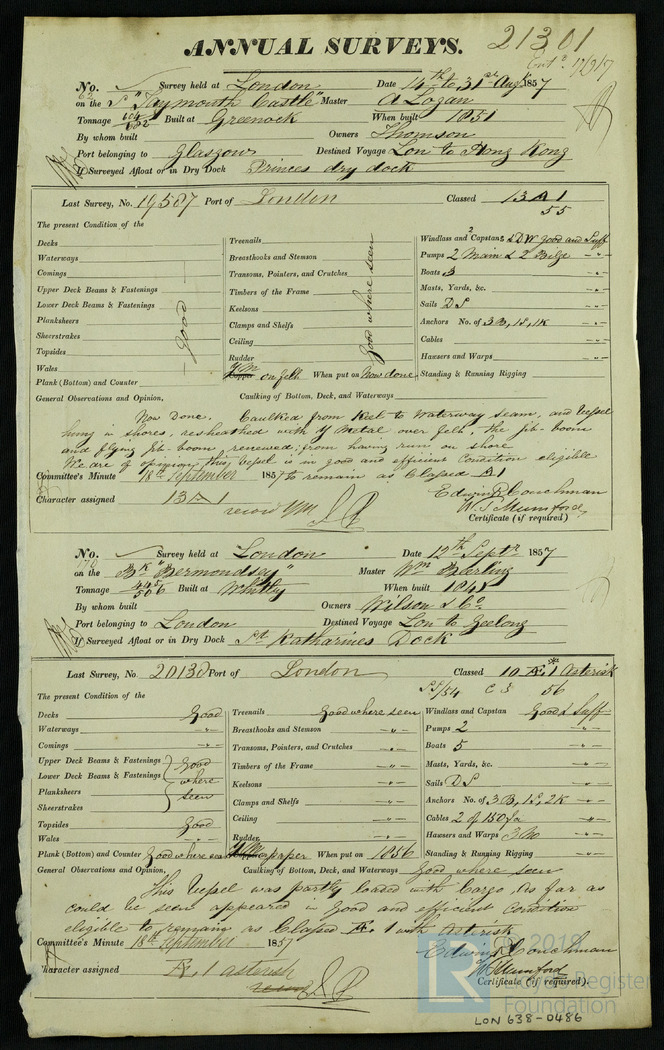 ANNUAL SURVEYS.
21301
No. 62 Survey held at London Date 14th to 31st Augt 1857
on the S "Taymouth Castle" Master A Logan
Tonnage 604/682 Built at Greenock When built 1851
By whom built Owners Thomson
Port belonging to Glasgow Destined Voyage Lon to Hong Kong
If Surveyed Afloat or in Dry Dock Princes dry dock
Last Survey, No. 19587 Port of London Classed 13 A 1
55
The present Condition of the
Decks
Waterways
Comings
Upper Deck Beams & Fastenings
Lower Deck Beams & Fastenings
Planksheers
Sheerstrakes
Topsides
Wales
Plank (Bottom) and Counter
good
Treenails
Breasthooks and Stemson
Transoms, Pointers, and Crutches
Timbers of the Frame
Keelsons
Clamps and Shelfs
Ceiling
Rudder
Copper YM on felt When put on Now done
Good where seen
Windlass and 2 Capstans good and Suff
Pumps 2 Main & 2 Bilge -"-
Boats 3 -"-
Masts, Yards, &c. -"-
Sails D S -"-
Anchors No. of 3B, 1S, 1K -"-
Cables -"-
Hawsers and Warps -"-
Standing & Running Rigging -"-
General Observations and Opinion, Caulking of Bottom, Deck, and Waterways
Now Done. Caulked from Keel to Waterway seam, and Vessel
hung in shores, resheathed with Y Metal over felt, the jib-boom
and flying jib-boom renewed; from having run on shore
We are of opinion this Vessel is in good and efficient Condition eligible
Committee's Minute 18th September 1857 to remain as Classed A1
Character assigned 13 A 1
Edwin R Couchman
W. S. Mumford,
Certificate (if required)
No. 170 Survey held at London Date 12th Septr 1857
on the Bk "Bermondsey" Master Wm Beerling
Tonnage 445/506 Built at Whitby When built 1848
By whom built Owners Wilson & Co.
Port belonging to London Destined Voyage Lon to Geelong
If Surveyed Afloat or in Dry Dock St Katharines Dock
Last Survey, No. 20130 Port of London Classed 10 Æ 1 Asterisk
SS/54 C S 56
The present Condition of the
Decks Good
Waterways -"-
Comings -"-
Upper Deck Beams & Fastenings
Lower Deck Beams & Fastenings
Planksheers
Sheerstrakes
Good where seen
Topsides Good
Wales -"-
Plank (Bottom) and Counter Good where seen
Treenails Good where seen
Breasthooks and Stemson -"-
Transoms, Pointers, and Crutches -"-
Timbers of the Frame -"-
Keelsons -"-
Clamps and Shelfs -"-
Ceiling -"-
Rudder -"-
YM on paper When put on 1856
Windlass and Capstan Good & Suff
Pumps 2 -"-
Boats 5 -"-
Masts, Yards, &c. -"-
Sails D S -"-
Anchors No. of 3B, 1S, 2K -"-
Cables 2 of 150 fa -"-
Hawsers and Warps -"-
Standing & Running Rigging -"-
General Observations and Opinion, Caulking of Bottom, Deck, and Waterways Good where seen
This Vessel was partly loaded with Cargo, As far as
could be seen appeared in good and efficient Condition
eligible to remain as Classed Æ 1 with Asterisk
Committee's Minute 18th September 1857
Character assigned Æ 1 asterisk
Edwin R Couchman
W S Mumford
Certificate (if required).
LR
© 2019
Lloyd's Register
Foundation
LON 638-0486